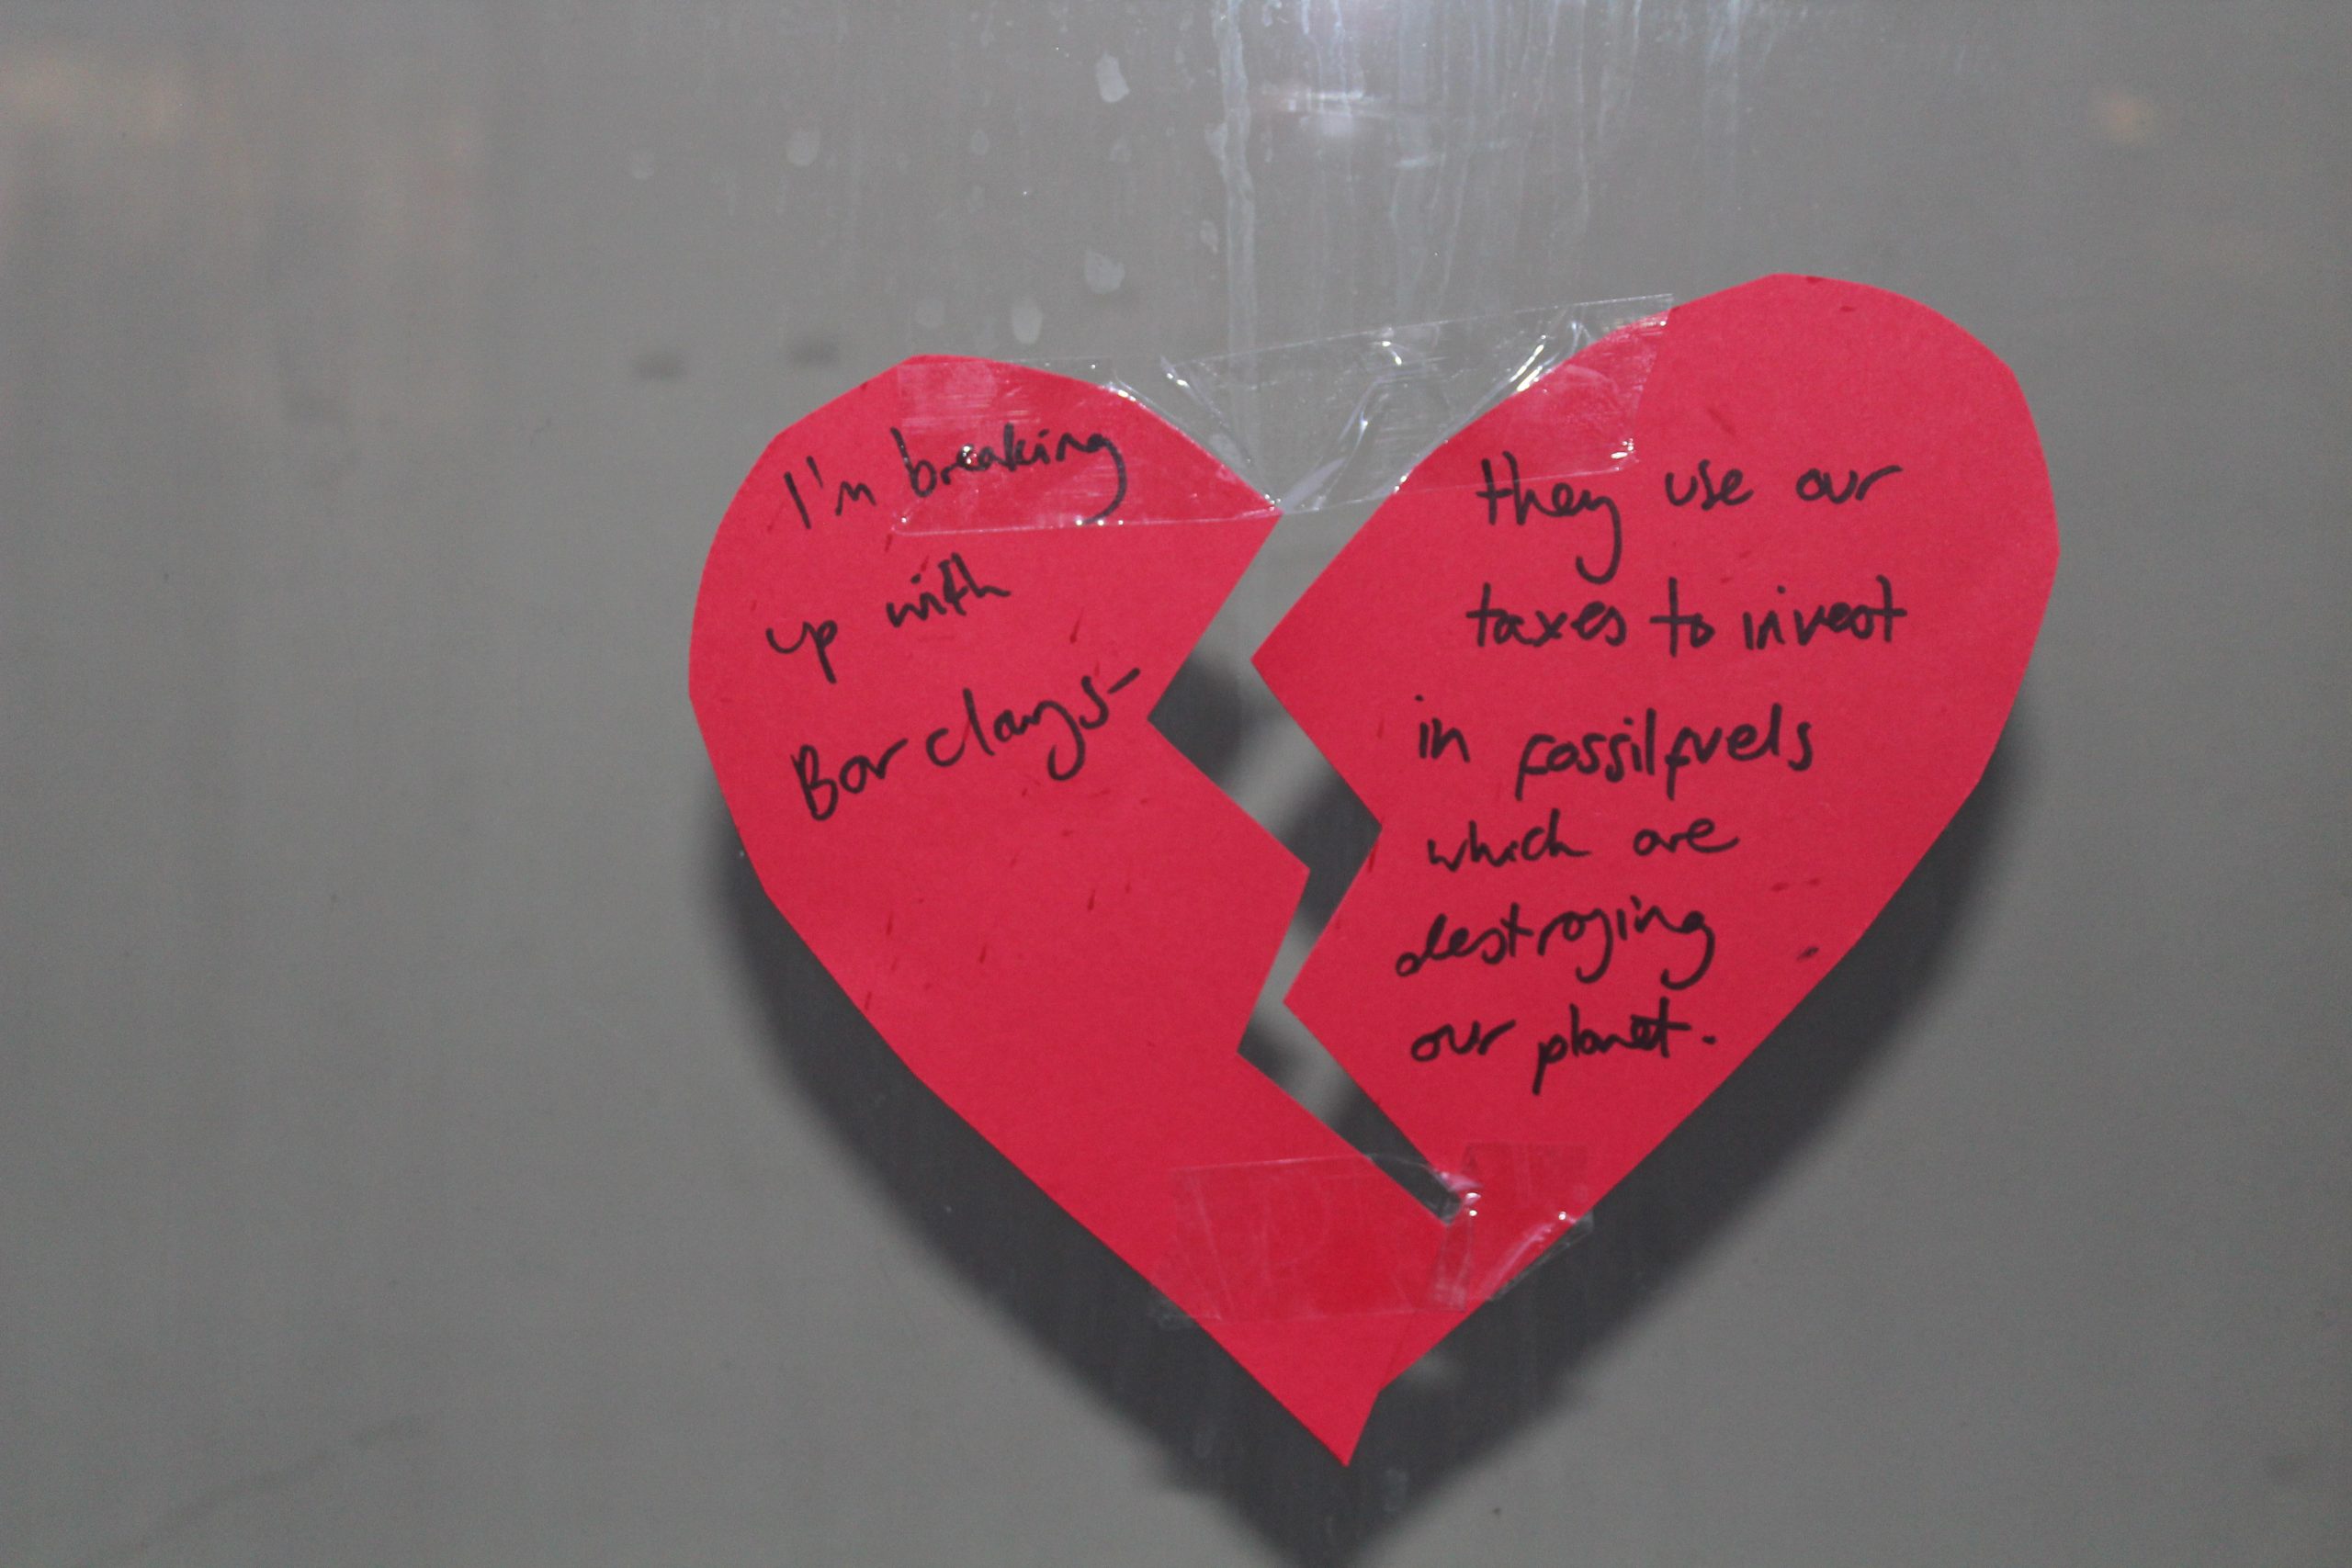 I'm breaking
up with
Barclays-
they use our
taxes to invest
in fossilfuels
which are
destroying
our planet.